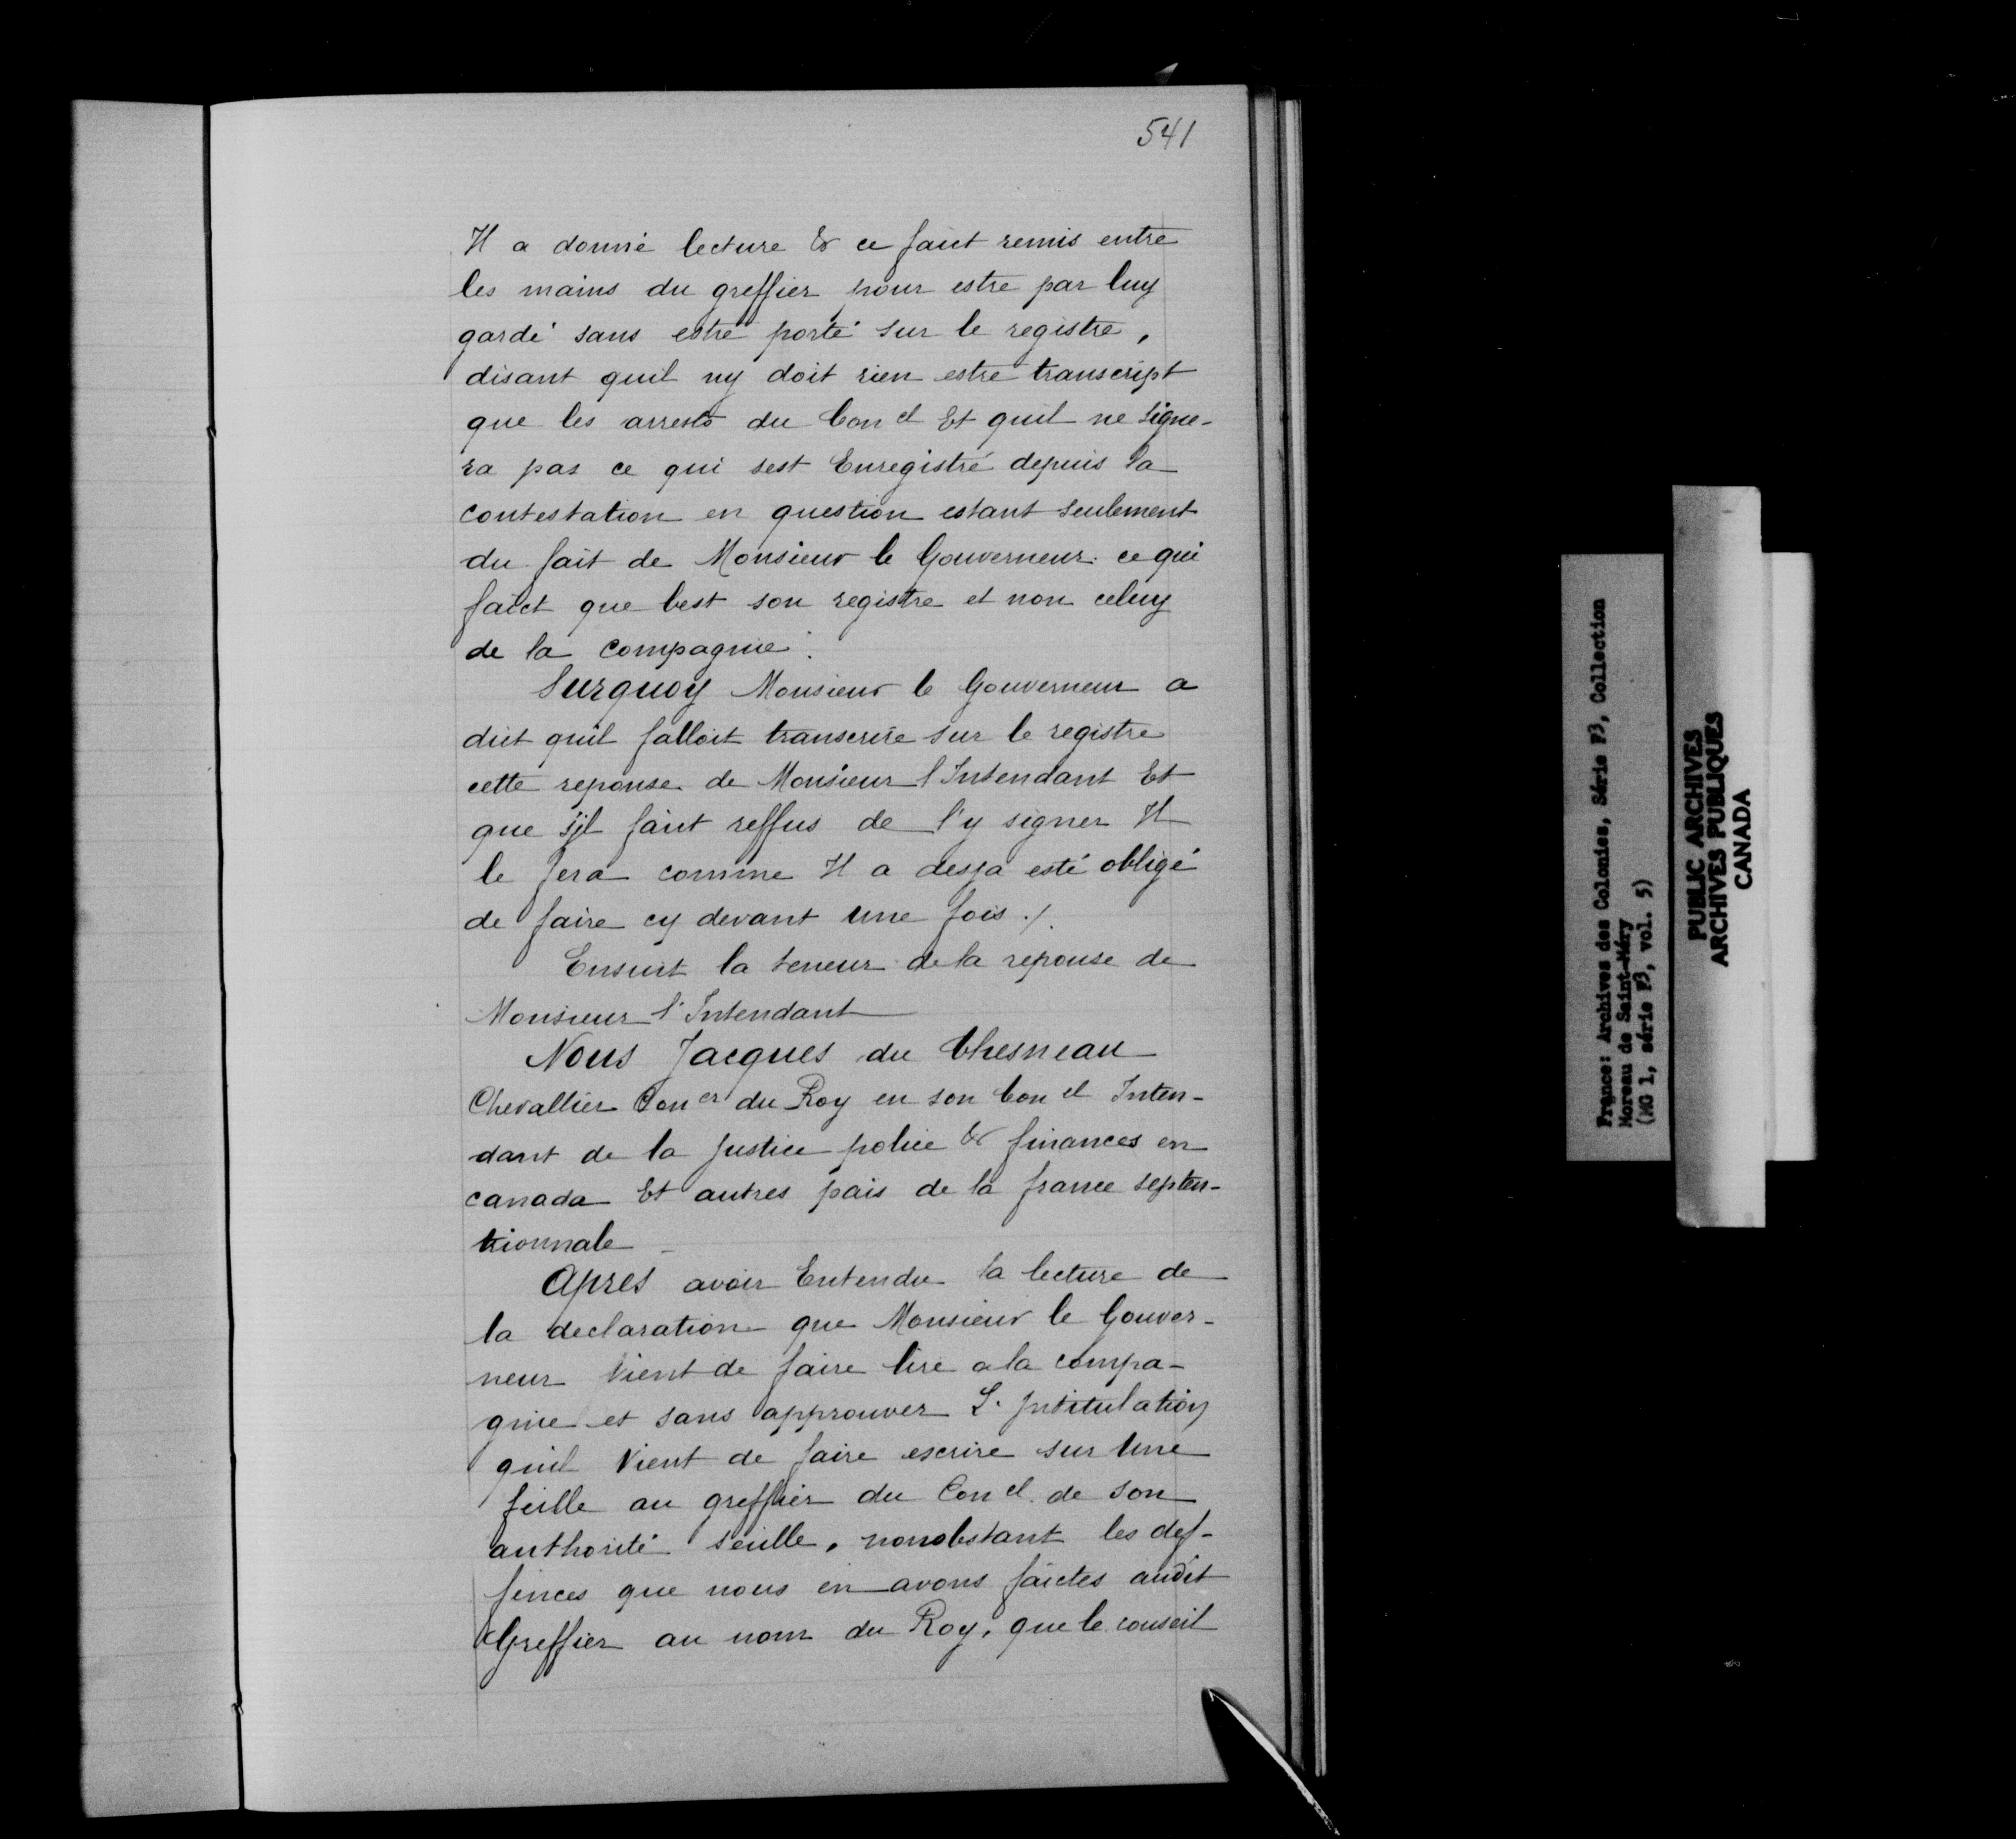 541
Il a donné lecture & ce faict remis entre
les mains du greffier pour estre par luy
gardé sans estre porté sur le registre,
disant quil ny doit rien estre transcript
que les arrests du Con el Et quil ne signe-
ra pas ce qui sest Enregistré depuis la
contestation en question estant seulement
du fait de Monsieur le Gouverneur. ce qui
faict que Cest son registre et non celuy
de la compagnie.
Surquoy Monsieur le Gouverneur a
dict quil falloit transcrire sur le registre
cette reponse de Monsieur l'Intendant Et
que sjl faict reffus de l'y signer Il
le fera comme Il a desja esté obligé
de faire cy devant Une fois ./.
Ensuit la teneur de la reponse de
Monsieur l'Intendant
Nous Jacques du Chesneau
Chevallier Con er du Roy en son Con el Inten-
dant de la Justice police & finances en
canada Et autres pais de la france septen-
trionnale
Apres avoir Entendu la lecture de
la declaration que Monsieur le Gouver-
neur Vient de faire lire a la compa-
gnie et sans approuver L'Jntitulation
quil Vient de faire escrire sur Une
feille au greffier du Con el de son
authorité seulle, nonobstant les def-
fences que nous en avons faictes audit
Greffier au nom du Roy, que le conseil
France: Archives des Colonies, Série F3, Collection
Moreau de Saint-Méry
(MG 1, série F3, vol. 5)
PUBLIC ARCHIVES
ARCHIVES PUBLIQUES
CANADA